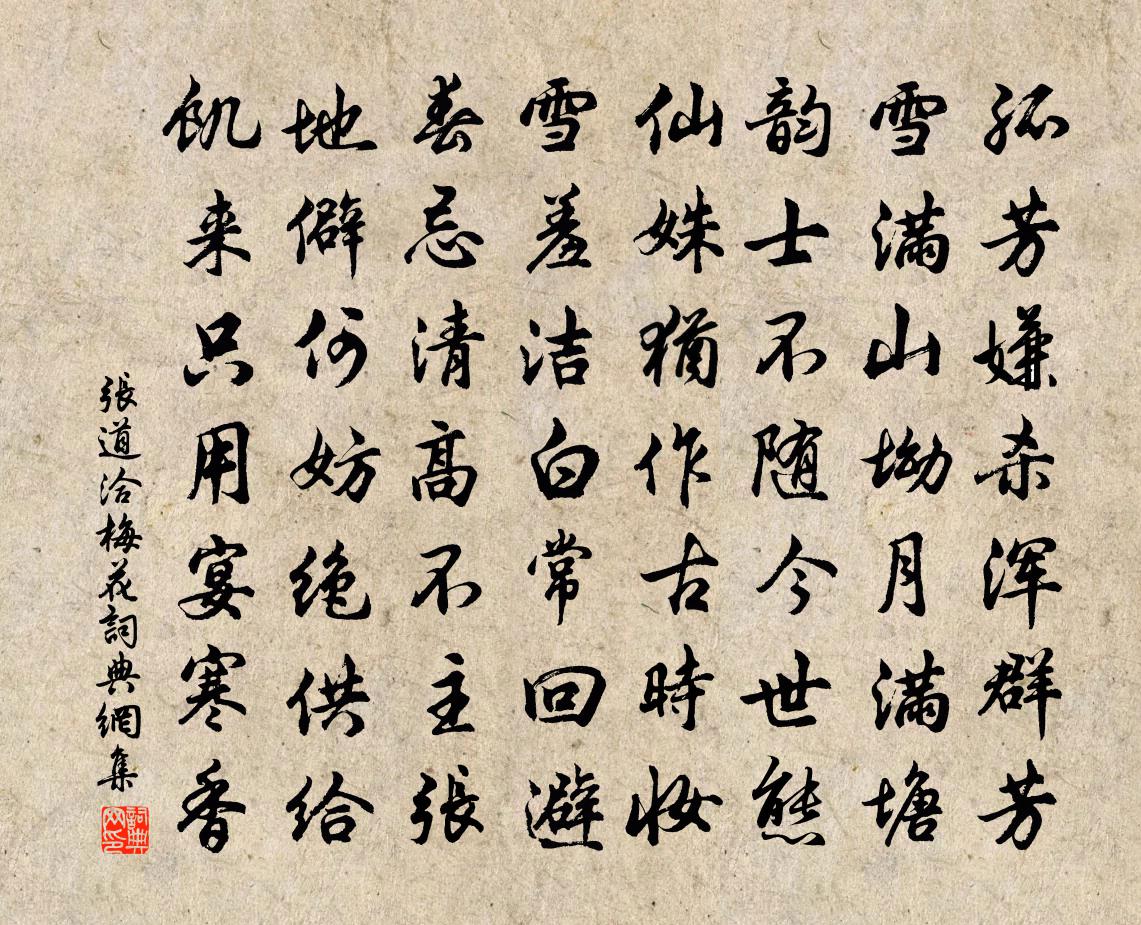 孤芳嫌杀浑群芳
雪满山坳月满塘
韵士不随今世態
仙姝犹作古時妆
雪羞洁白常回避
春忌清高不主張
地僻何妨绝供给
飢来只用宴寒香
張道洽梅花詞典網集
詞典